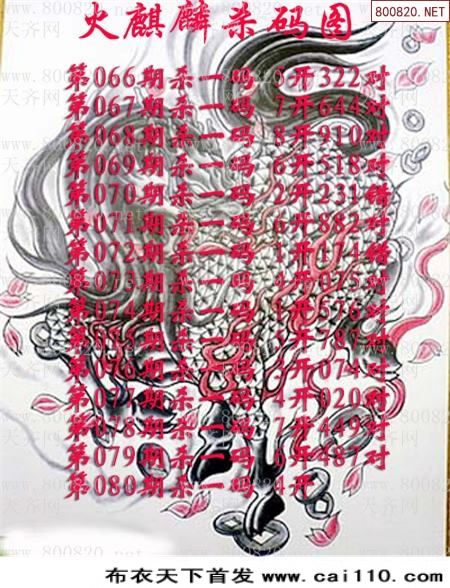 800820.NET
火麒麟杀码图
第066期杀一码 开322对
第067期杀一码 7开644对
第068期杀一码 8开910对
第069期杀一码 6开518对
第070期杀一码 2开231错
第071期杀一码 6开882对
第072期杀一码 1开174错
第073期杀一码 4开075对
第074期杀一码 1开576对
第075期杀一码 开787对
第076期杀一码 开074对
第077期杀一码 4开020对
第078期杀一码 开449对
第079期杀一码 开487对
第080期杀一码 4开
www.800820.net
天齐网
布衣天下首发 www.cai110.com